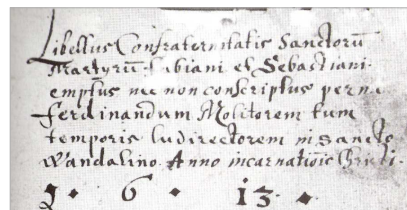 Libellus Confraternitatis Sanctorū
Martyrū Fabiani et Sebastiani
emptus nec non conscriptus per me
Ferdinandum Molitorem tum
temporis ludirectorem in Sancto
Wandalino. Anno incarnatiōis Christi.
1 • 6 • 13 •